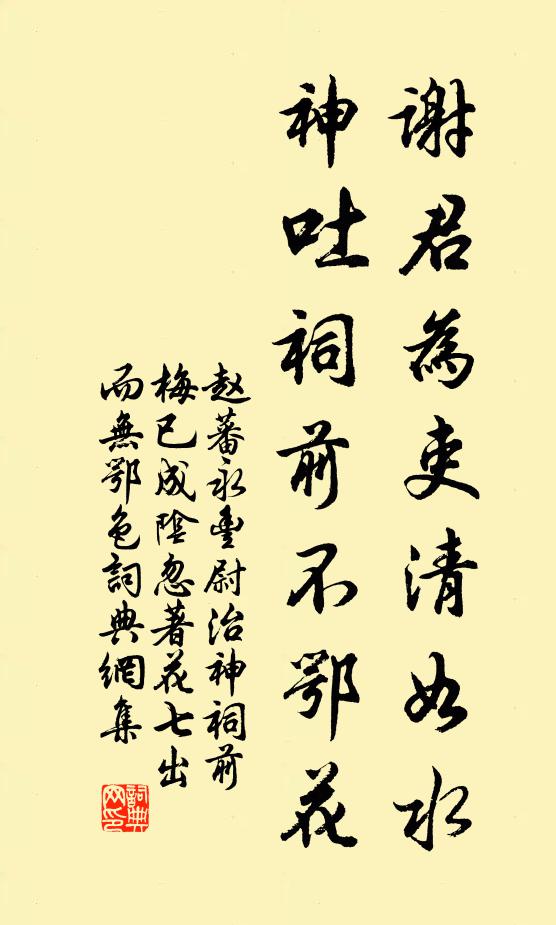 謝君為吏清如水
神吐祠前不鄂花
赵蕃永豐尉治神祠前
梅已成陰忽著花七出
而無鄂色詞典網集
詞典網印